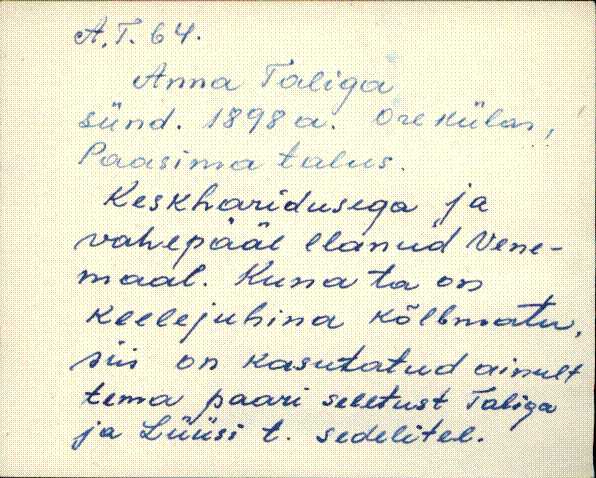 A.T. 64.
Anna Taliga
sünd. 1898 a. Ore külas,
Paasima talus.
Keskharidusega ja
vahepääl elanud Vene-
maal. Kuna ta on
keelejuhina kõlbmatu,
siis on kasutatud ainult
tema paari seletust Taliga
ja Lüüsi t. sedelitel.